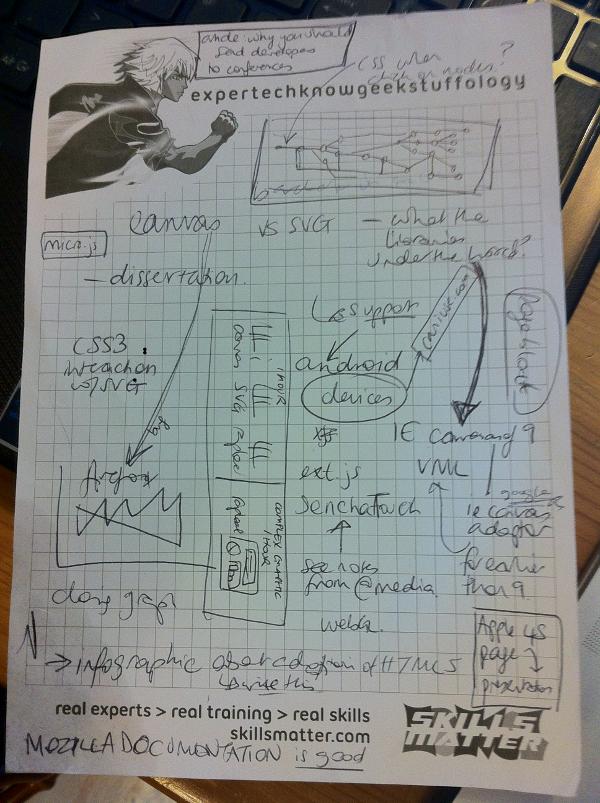 why you should
send developers
to conferences
CSS when
click on nodes?
expertechknowgeekstuffology
canvas vs SVG – what the
libraries
under the hood?
micro.js
– dissertation.
CSS3
interaction
w/ SVG
support
android
devices
caniuse.com
IE canvas 9
VML
ext.js
Sencha Touch
see notes
from @media
google
ie canvas
adaptor
for earlier
than 9
canvas SVG
1 HOUR
COMPLEX GRAPHIC
1 HOUR
graph
Apple 4S
page
presentation
→ infographic about adoption of HTML5
real experts > real training > real skills
skillsmatter.com
SKILLS
MATTER
MOZILLA DOCUMENTATION is good